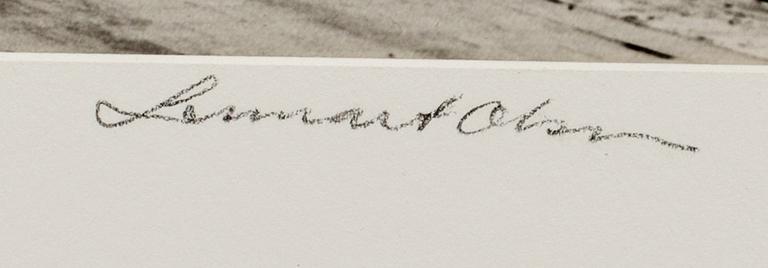 Lennart Olson